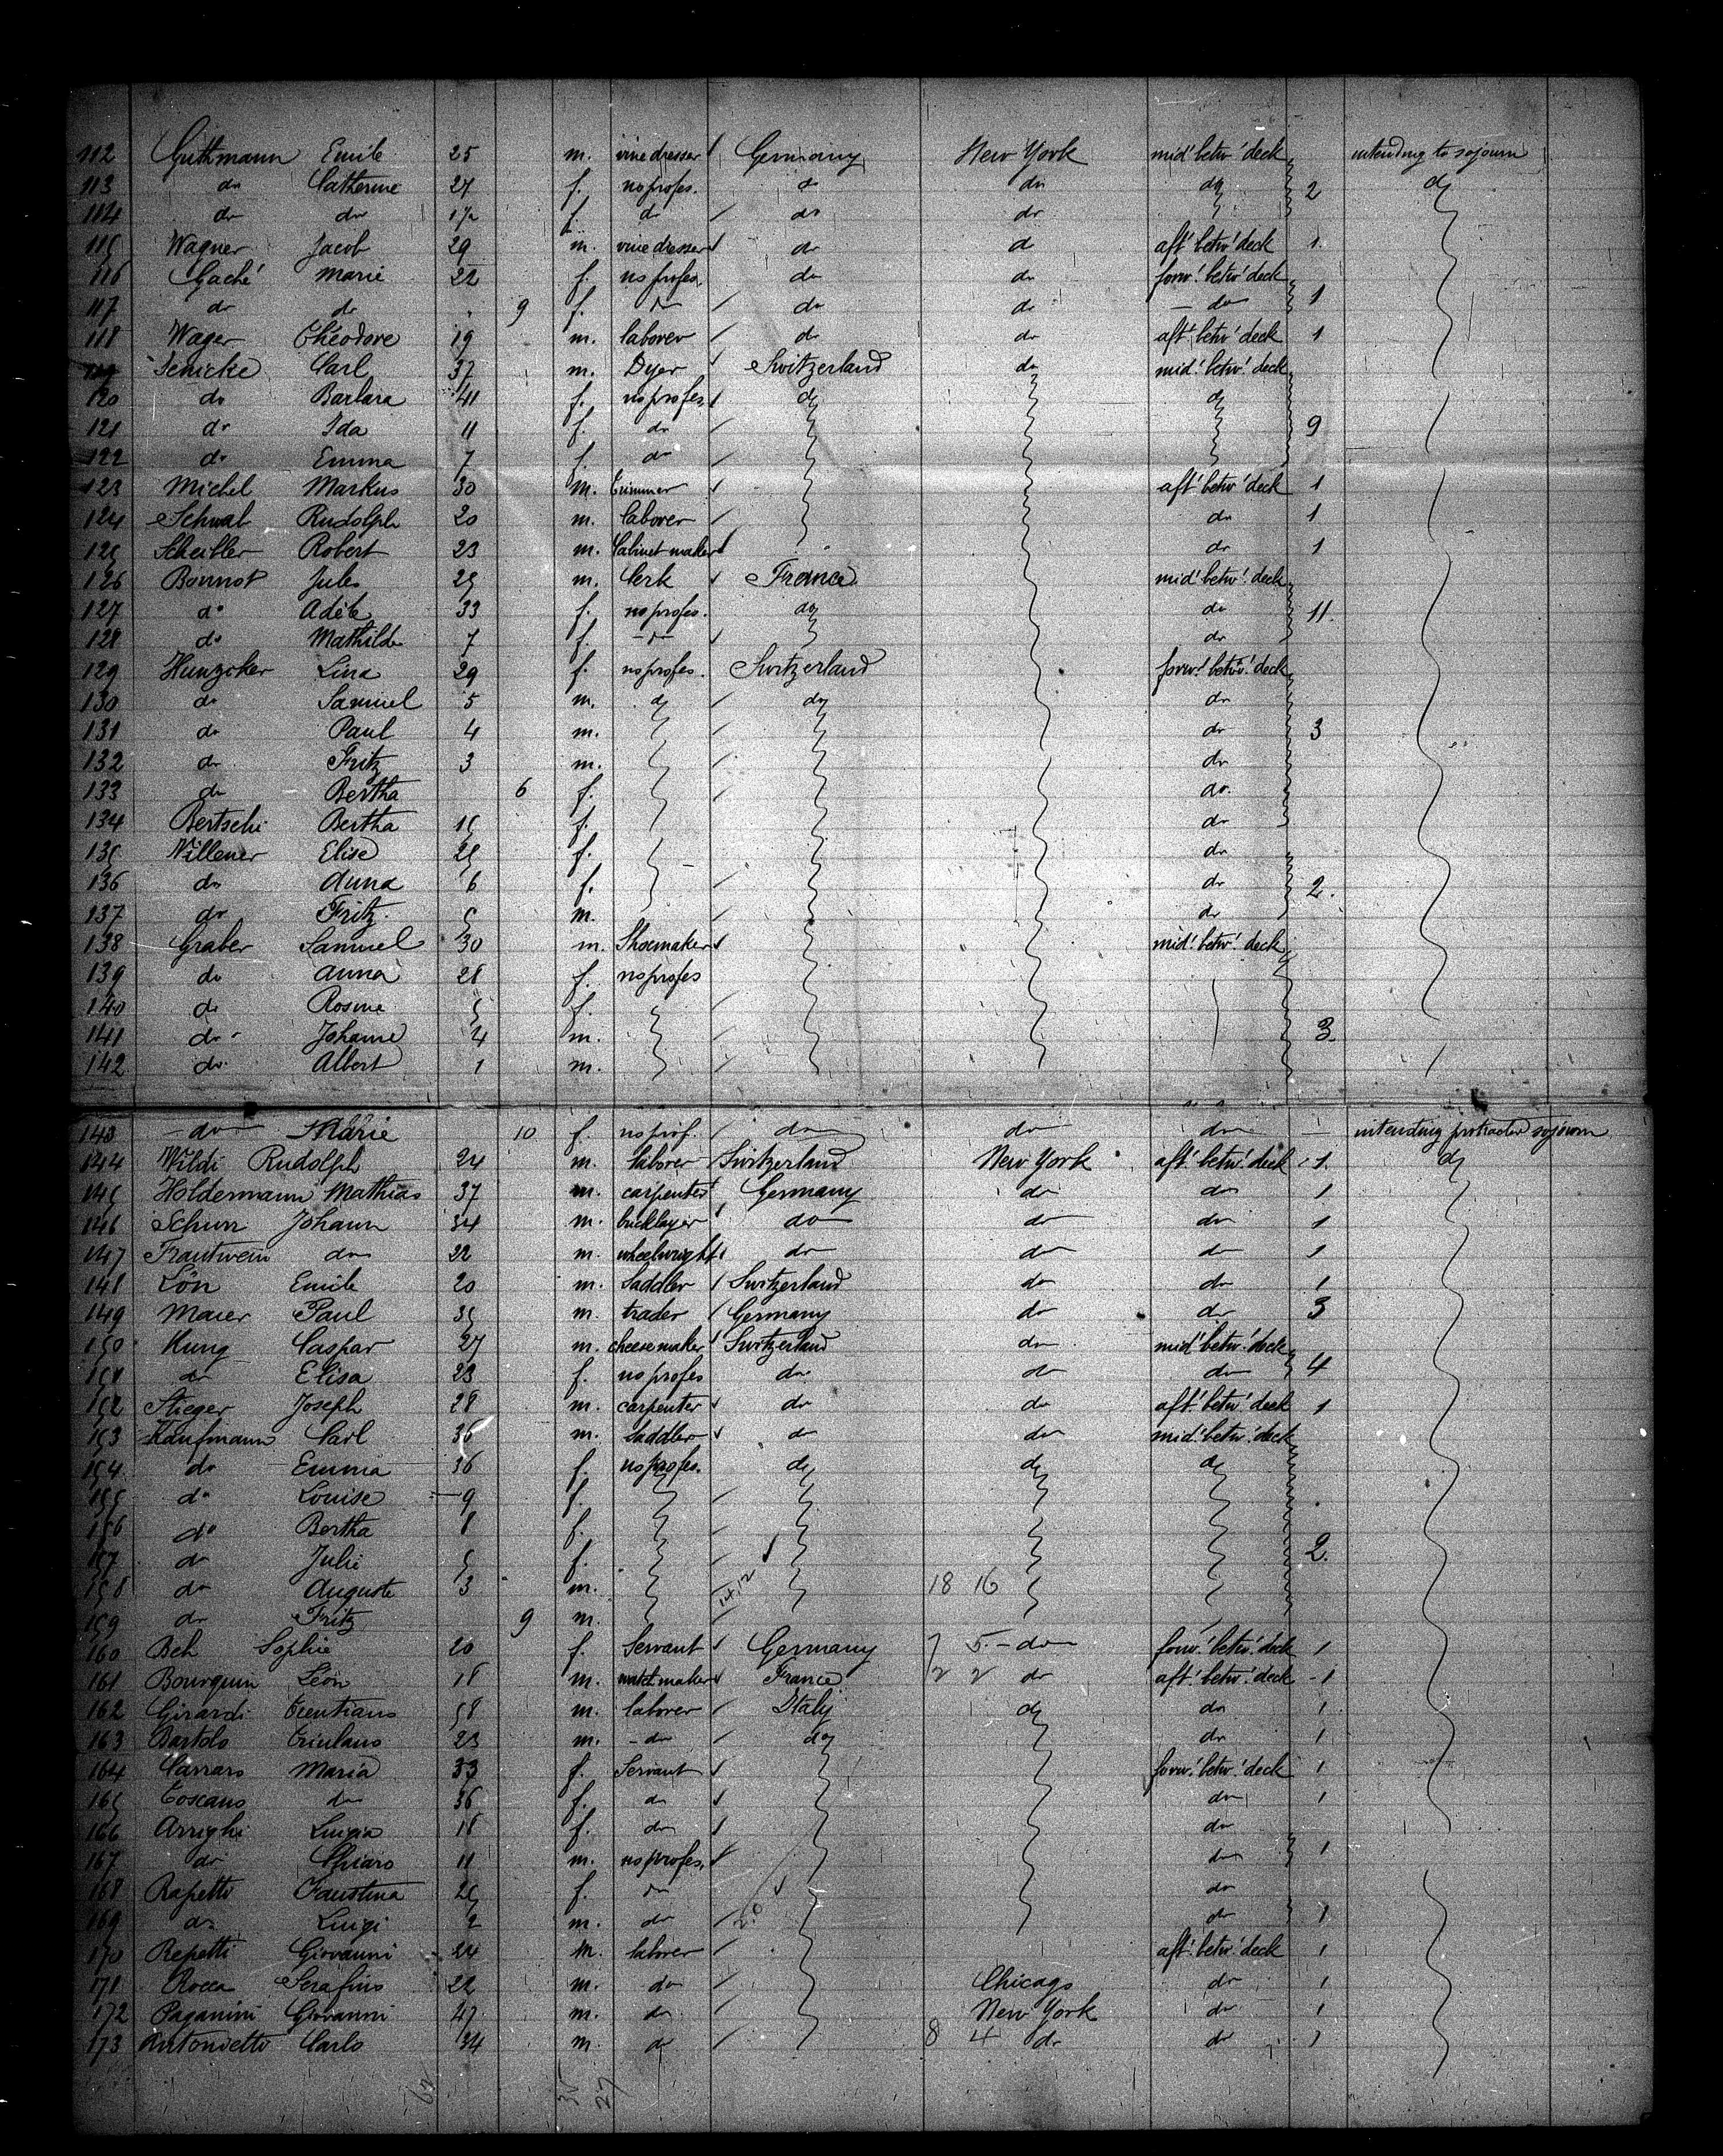 112 Guthmann Emile 25 m. vine dresser Germany New York mid! betw! deck intending to sojourn
113 do Catherine 27 f. no profes. do do do 2 do
114 do do 1½ f. do do do
115 Wagner Jacob 29 m. vine dresser do do aft! betw! deck 1.
116 Gaché Marie 22 f. no profes. do do forw! betw! deck
117 do do 9 f. do do do do 1
118 Wager Théodore 19 m. laborer do do aft! betw! deck 1
119 Jenicke Carl 37 m. Dyer Switzerland do mid! betw! deck
120 do Barbara 41 f. no profes. do do
121 do Ida 11 f. do 9
122 do Emma 7 f. do
123 Michel Markus 30 m. trimmer aft! betw! deck 1
124 Schwab Rudolph 20 m. laborer do 1
125 Scheibler Robert 23 m. Cabinet maker do 1
126 Bonnot Jules 25 m. Clerk France mid! betw! deck
127 do Adèle 33 f. no profes. do do 11.
128 do Mathilde 7 f. do do
129 Hunziker Lina 29 f. no profes. Switzerland forw! betw! deck
130 do Samuel 5 m. do do do
131 do Paul 4 m. do 3
132 do Fritz 3 m. do
133 do Bertha 6 f. do.
134 Bertschi Bertha f. do
135 Willener Elise 25 f. do
136 do Anna 6 f. do 2.
137 do Fritz. 5 m. do
138 Graber Samuel 30 m. Shoemaker mid! betw! deck
139 do Anna 28 f. no profes
140 do Rosine 5 f.
141 do Johann 4 m. 3.
142 do Albert 1 m.
143 do Marie 10 f. no prof. do do do intending protracted sojourn
144 Wildi Rudolph 24 m. laborer Switzerland New York aft! betw! deck 1. do
145 Holdermann Mathias 37 m. carpenter Germany do do 1
146 Schurr Johann 34 m. bricklayer do do do 1
147 Trautwein do 22 m. wheelwright do do do 1
148 Lön Emile 20 m. Saddler Switzerland do do 1
149 Maier Paul 35 m. trader Germany do do 3
150 Hung Caspar 27 m. cheese maker Switzerland do mid! betw! deck
151 do Elisa 23 f. no profes do do do 4
152 Stieger Joseph 28 m. carpenter do do aft! betw! deck 1
153 Kaufmann Carl 36 m. Saddler do do mid! betw! deck
154 do Emma 36 f. no profes. do do do
155 do Louise 9 f.
156 do Bertha 8 f.
157 do Julie 5 f. 2.
158 do Auguste 3 m. 14.12 18 16
159 do Fritz 9 m.
160 Beh Sophie 20 f. Servant Germany 7 5. do forw! betw! deck 1
161 Bourquin Léon 18 m. watch maker France 2 2 do aft! betw! deck 1
162 Girardi 58 m. laborer Italy do do 1
163 Bartolo 23 m. do do do 1
164 Carraro Maria 33 f. Servant forw! betw! deck 1
165 Toscano do 36 f. do do 1
166 Arrighi Luigia 18 f. do do
167 do Chiaro 11 m. no profes. do 1
168 Rapetto Faustina 25 f. do do
169 do Luigi 2 m. do 20 do 1
170 Repetti Giovanni 24 m. laborer aft! betw! deck 1
171 Rocca Serafino 22 m. do Chicago do 1
172 Paganini Giovanni 47 m. do New York do 1
173 Antonietto Carlo 34 m. do 8 4 do do 1
62 35 27